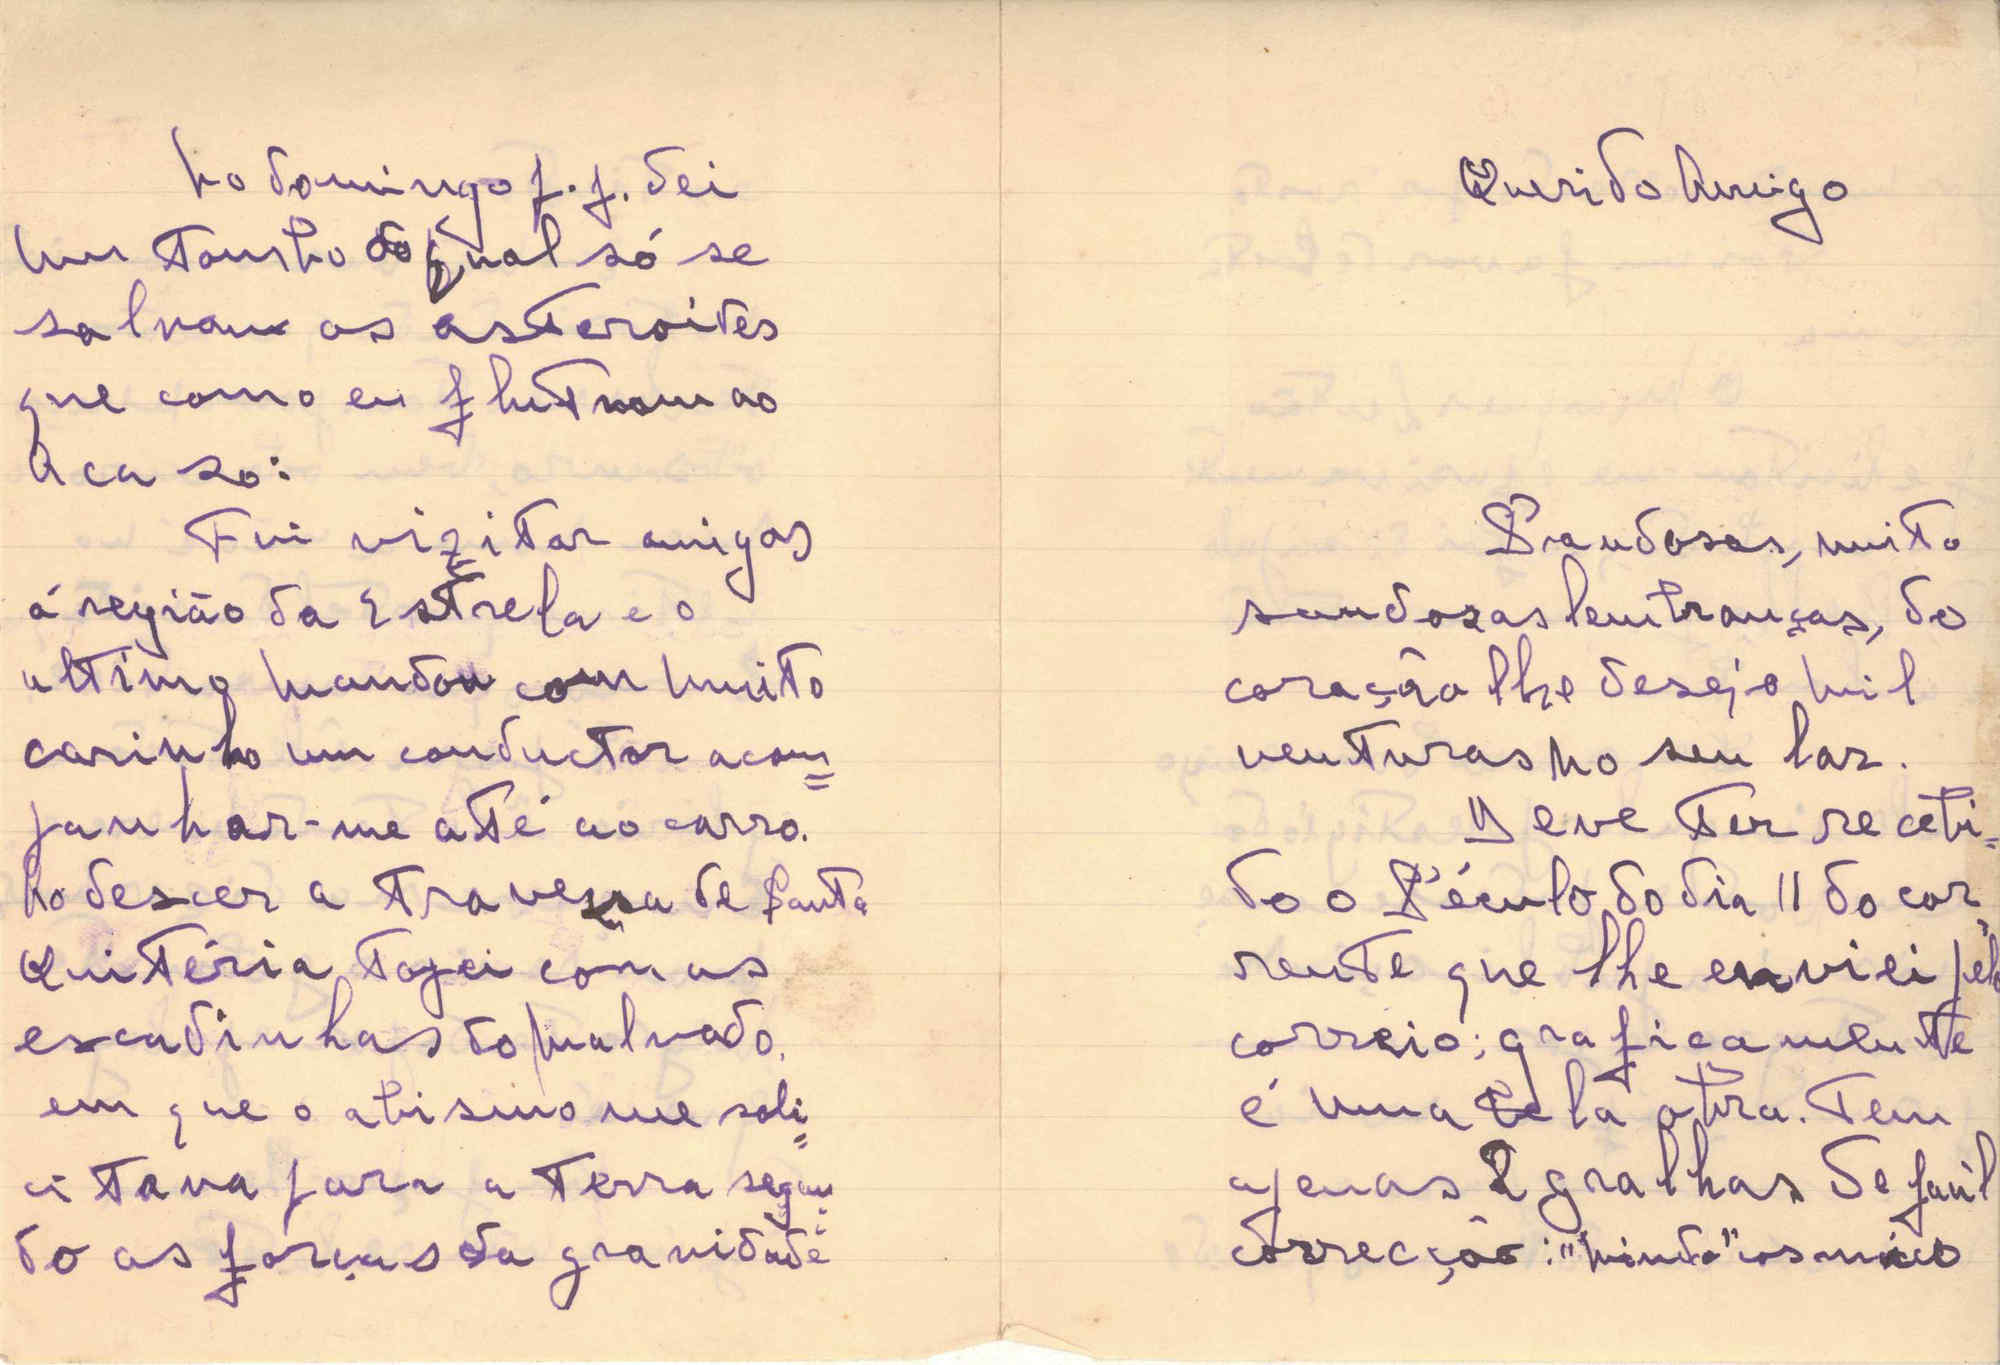 Querido Amigo
Saudosas, muito
saudosas lembranças, do
coração lhe desejo mil
venturas no seu lar.
Deve ter recebi-
do o Século do dia 11 do cor-
rente que lhe enviei pelo
correio; graficamente
é uma bela obra. Tem
apenas 2 gralhas de facil
correcção: "mindo" cosmico
No domingo p.p. dei
um tombo do qual só se
salvam os asteroides
que como eu flutuam ao
Acaso:
Fui vizitar amigas
á região da Estrela e o
ultimo mandou com muito
carinho um conductor acom=
panhar-me até ao carro.
No descer a travessa de Santa
Quitéria topei com as
escadinhas do malvado.
em que o abismo me soli=
citava para a terra segun=
do as forças da gravidade